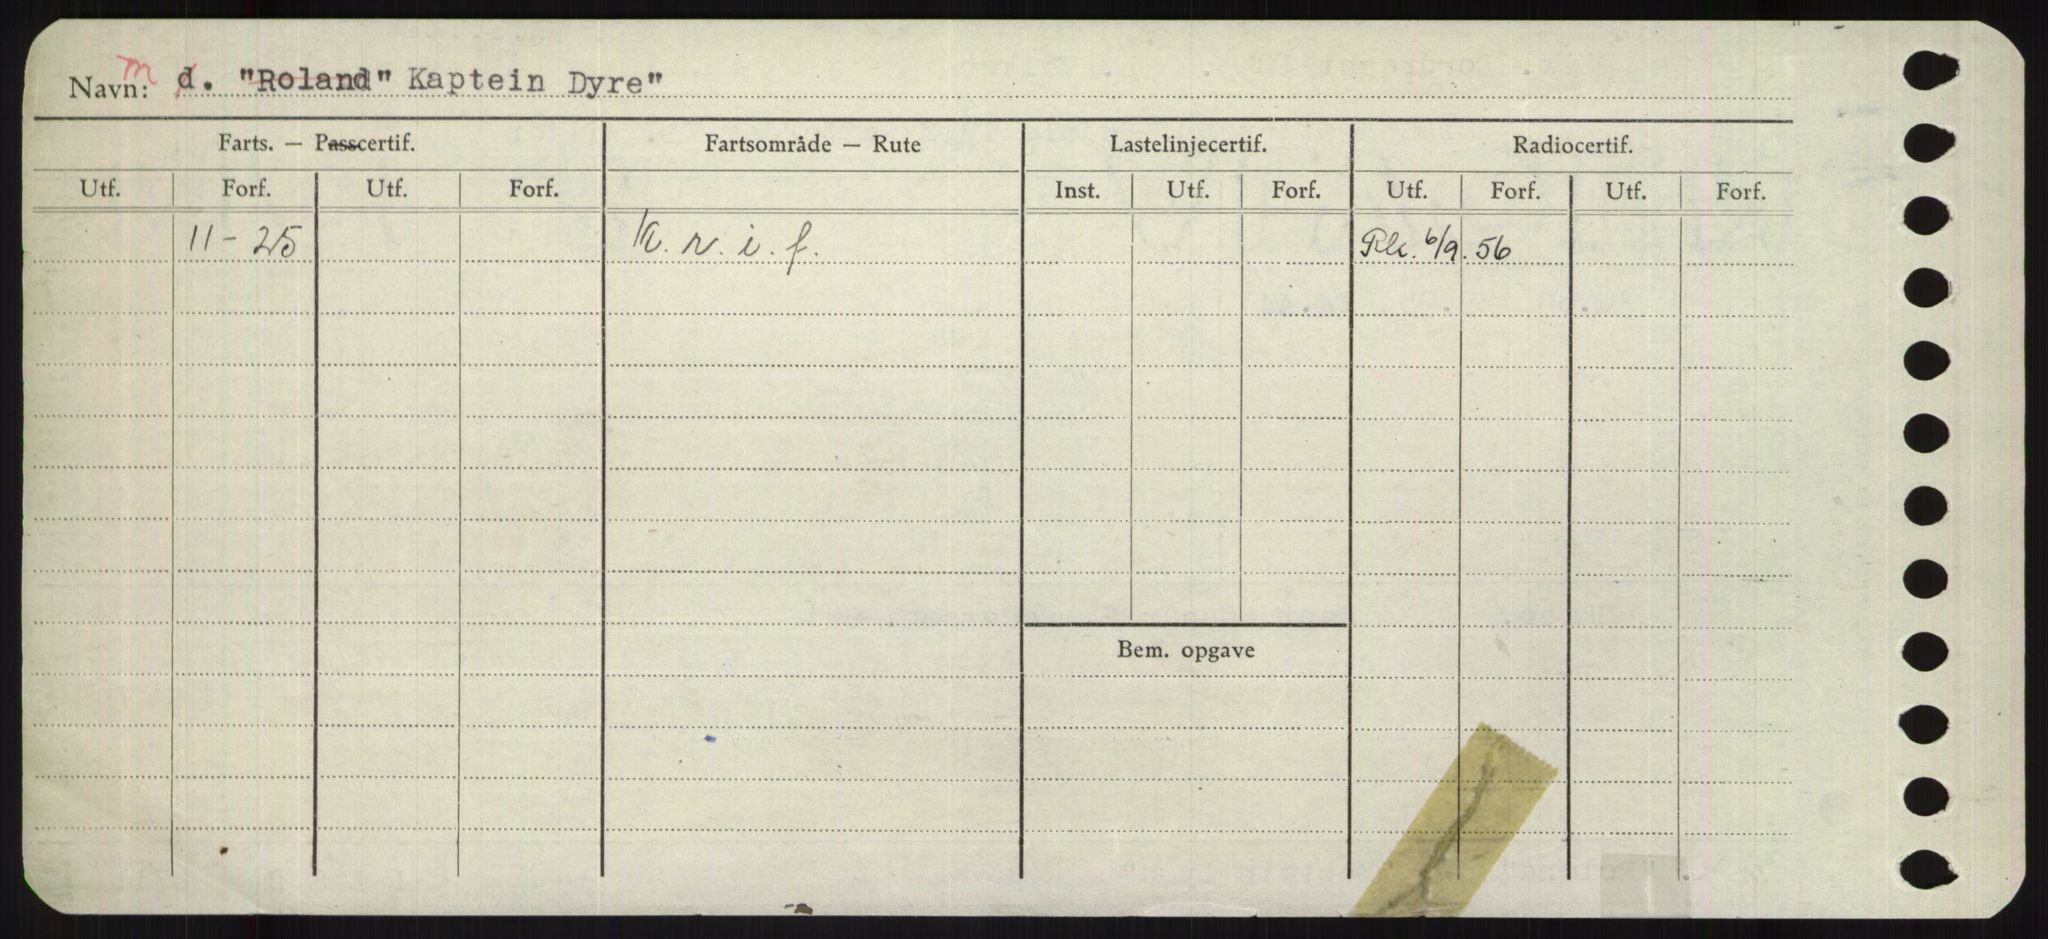 Navn: m d. "Roland" Kaptein Dyre"
Farts. — Passcertif. Fartsområde — Rute Lastelinjecertif. Radiocertif.
Utf. Forf. Utf. Forf. Inst. Utf. Forf. Utf. Forf. Utf. Forf.
11-25 K. r. i. f. Rk. 6/9. 56
Bem. opgave